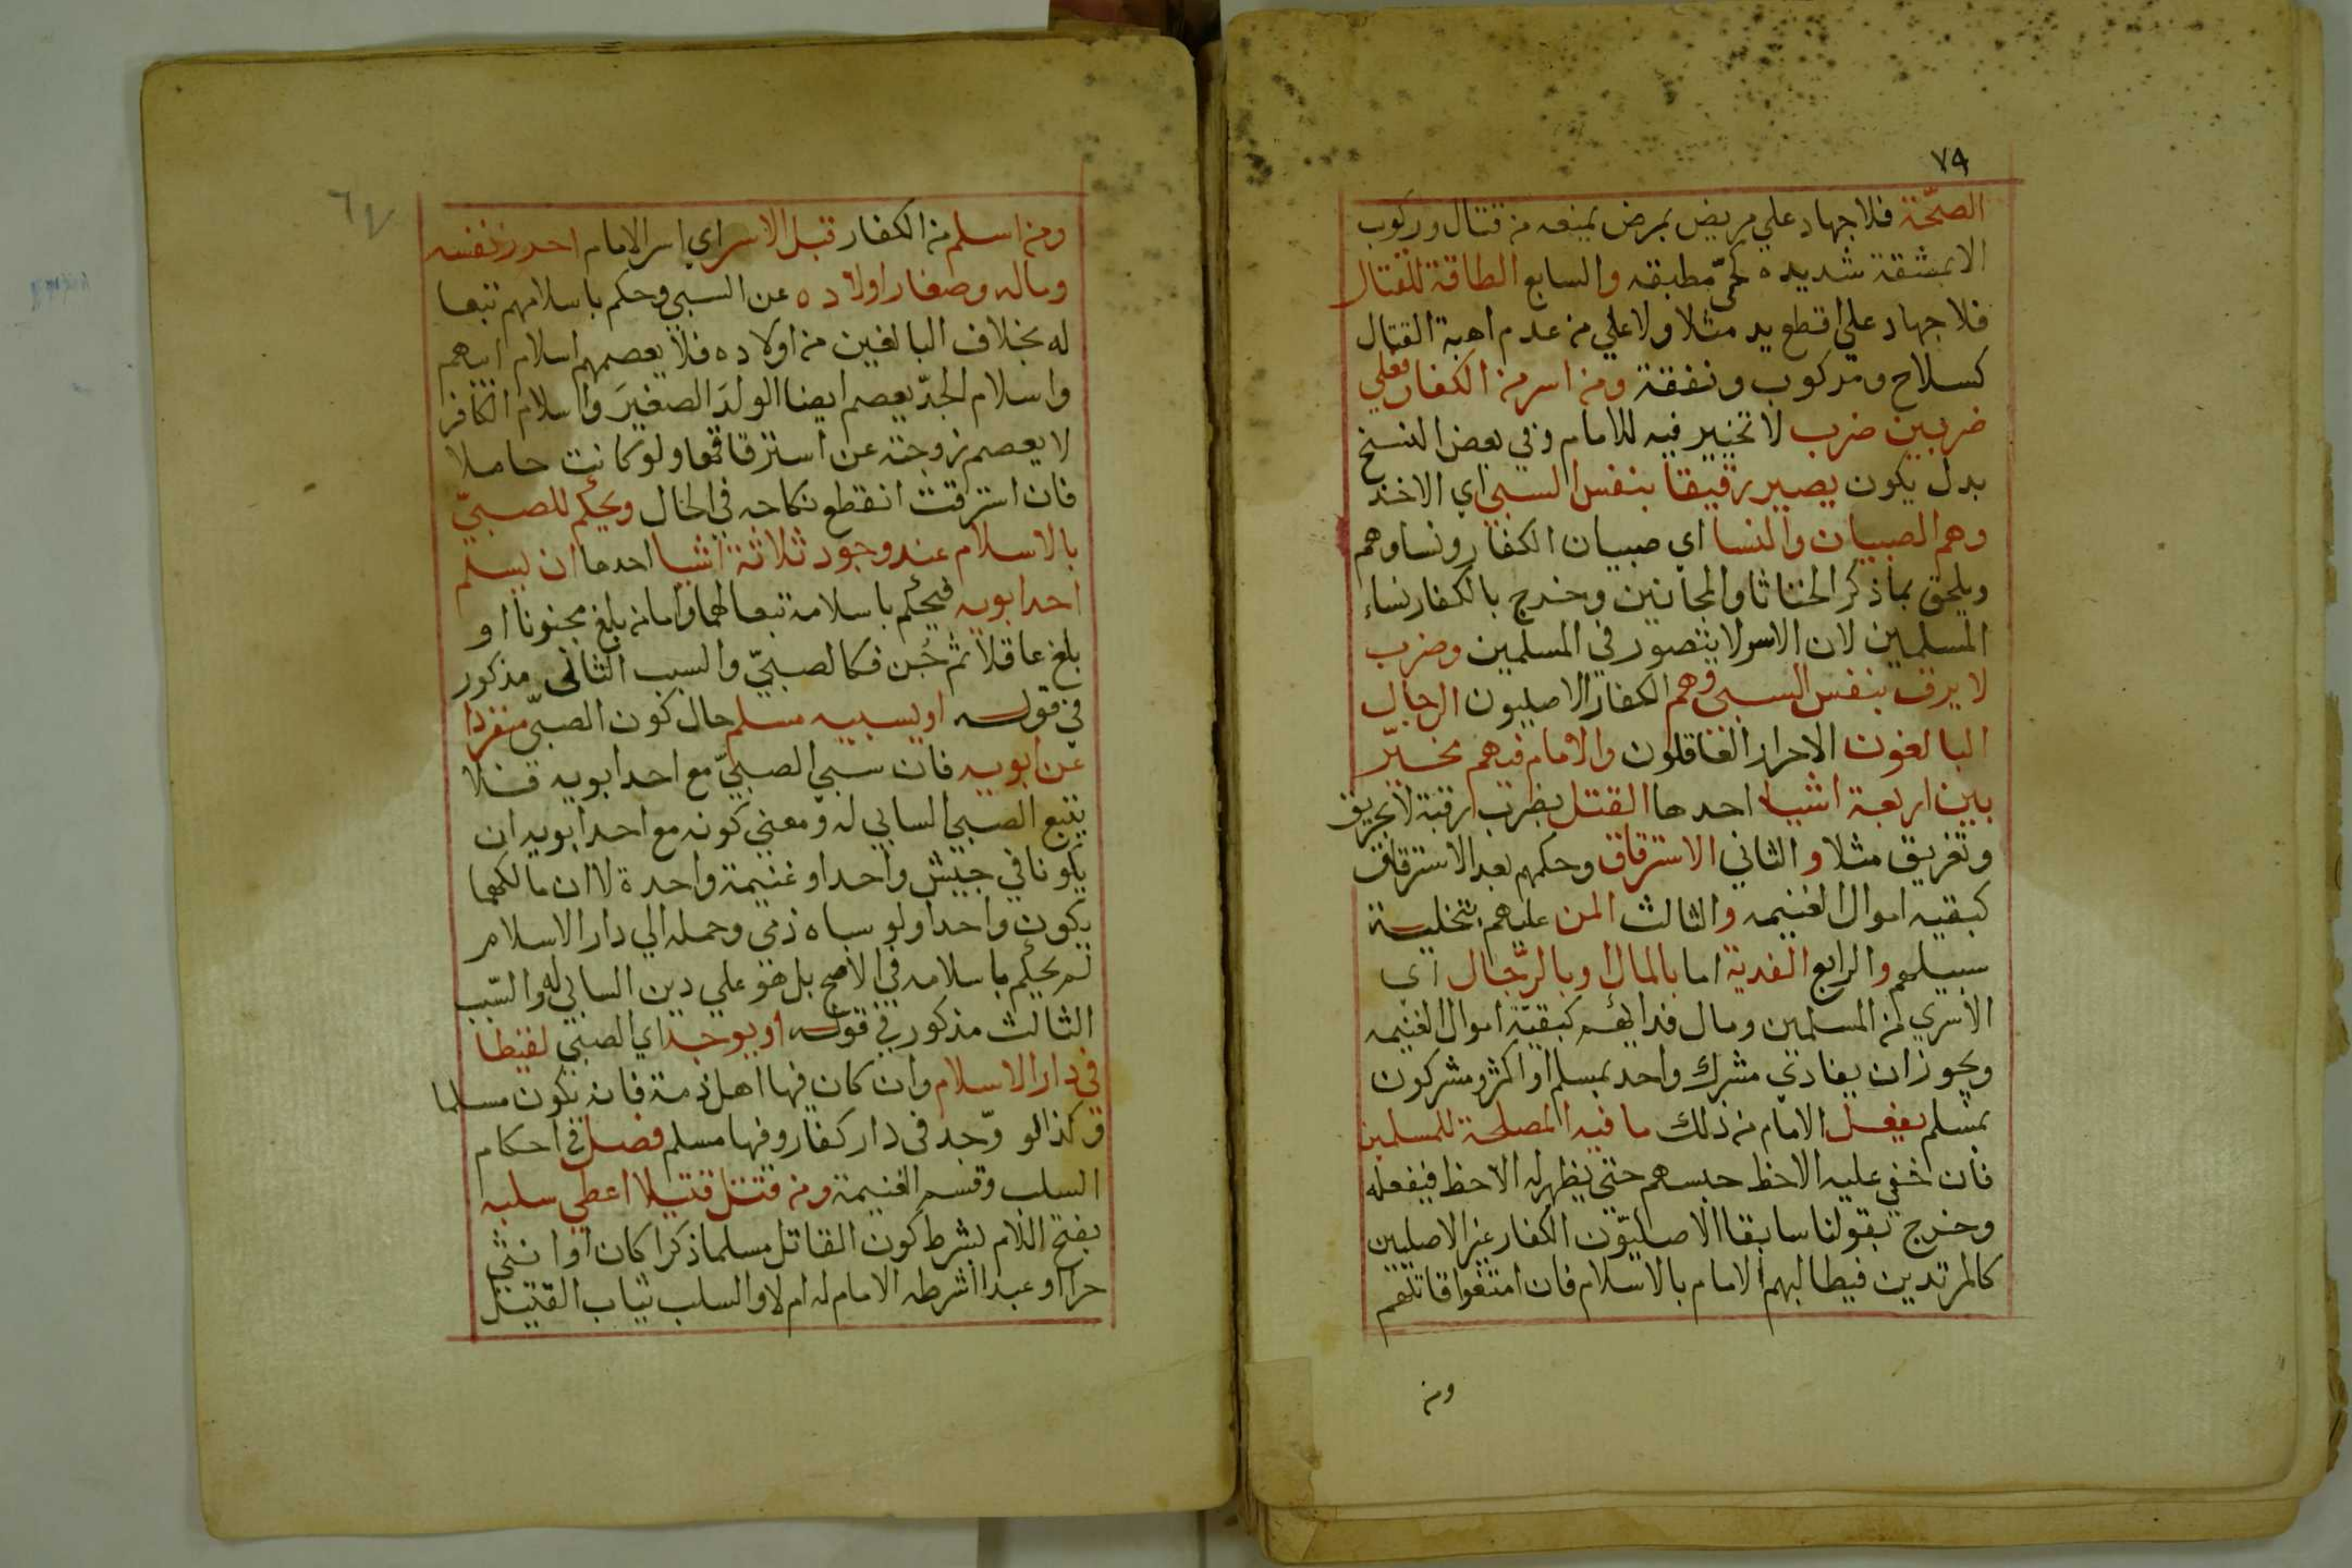 ٧٩
الصحّة فلا جهاد علي مريض بمرض يمنعه من قتال وركوب
الا بمشقة شديده كحمّي مطبقه والسابع الطاقة للقتال
فلا جهاد علي اقطع يد مثلا ولا علي من عدم اهبة القتال
كسلاح ومركوب ونفقة ومن اسر من الكفار فعلي
ضربين ضرب لا تخيير فيه للامام وفي بعض النسخ
بدل يكون يصير رقيقا بنفس السبي اي الاخذ
وهم الصبيان والنسا اي صبيان الكفار ونساوهم
ويلحق بما ذكر الخناثا والمجانين وخرج بالكفار نساء
المسلمين لان الاسر لا يتصور في المسلمين وضرب
لا يرق بنفس السبي وهم الكفار الاصليون الرجال
البالغون الاحرار العاقلون والامام فيهم مخيّر
بين اربعة اشيا احدها القتل بضرب رقبة لا تحريق
وتغريق مثلا والثاني الاسترقاق وحكمهم بعد الاسترقاق
كبقيه اموال الغنيمه والثالث المن عليهم بتخلية
سبيلهم والرابع الفدية اما بالمال او بالرّجال اي
الاسري من المسلمين ومال فدائهم كبقيّة اموال الغنيمه
ويجوز ان يفادي مشرك واحد بمسلم او اكثر ومشركون
بمسلم يفعل الامام من ذلك ما فيه المصلحة للمسلمين
فان خفي عليه الاحظ حبسهم حتي يظهر له الاحظ فيفعله
وخرج بقولنا سابقا الاصليّون الكفار غير الاصليين
كالمرتدين فيطالبهم الامام بالاسلام فان امتنعوا قاتلهم
ومن
٦٧
ومن اسلم من الكفار قبل الاسر اي اسر الامام احرز نفسه
وماله وصغار اولاده عن السبي وحكم باسلامهم تبعا
له بخلاف البالغين من اولاده فلا يعصمهم اسلام ابيهم
واسلام الجدّ يعصم ايضا الولدَ الصغيرَ واسلام الكافر
لا يعصم زوجته عن استرقاقها ولو كانت حاملا
فان استرقت انقطع نكاحه في الحال ويحكم للصبيّ
بالاسلام عند وجود ثلاثة اشيا احدها ان يسلم
احد ابويه فيحكم باسلامه تبعا لهما واما من بلغ مجنونا او
بلغ عاقلا ثم جُن فكالصبيّ والسبب الثاني مذكور
في قوله او يسبيه مسلم حال كون الصبيّ منفردا
عن ابويه فان سبي الصبيّ مع احد ابويه فلا
يتبع الصبي السابي له ومعني كونه مع احد ابويه ان
يكونا في جيش واحد او غنيمة واحدة لا ان مالكهما
يكون واحدا ولو سباه ذمي وحمله الي دار الاسلام
لم يحكم باسلامه في الاصح بل هو علي دين السابي له والسّبب
الثالث مذكور في قوله او يوجد اي الصبي لقيطا
في دار الاسلام وان كان فيها اهل ذمة فانه يكون مسلما
وكذا لو وّجد في دار كفار وفيها مسلم فصل في احكام
السلب وقسم الغنيمة ومن قتل قتيلا اعطي سلبه
بفتح اللام بشرط كون القاتل مسلما ذكرا كان او انثي
حرا او عبدا اشرطه الامام له ام لا والسلب ثياب القتيل